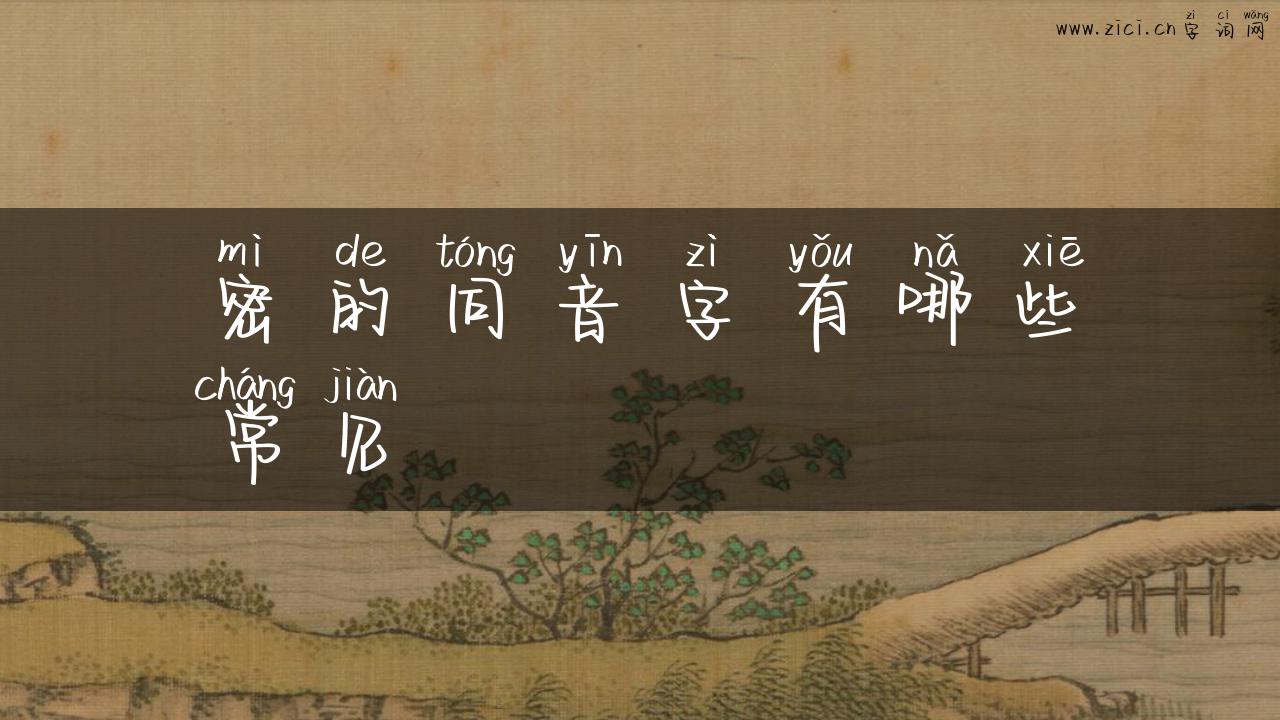 zì cí wǎng
www.zici.cn 字词网
mì de tóng yīn zì yǒu nǎ xiē
密的同音字有哪些
cháng jiàn
常见